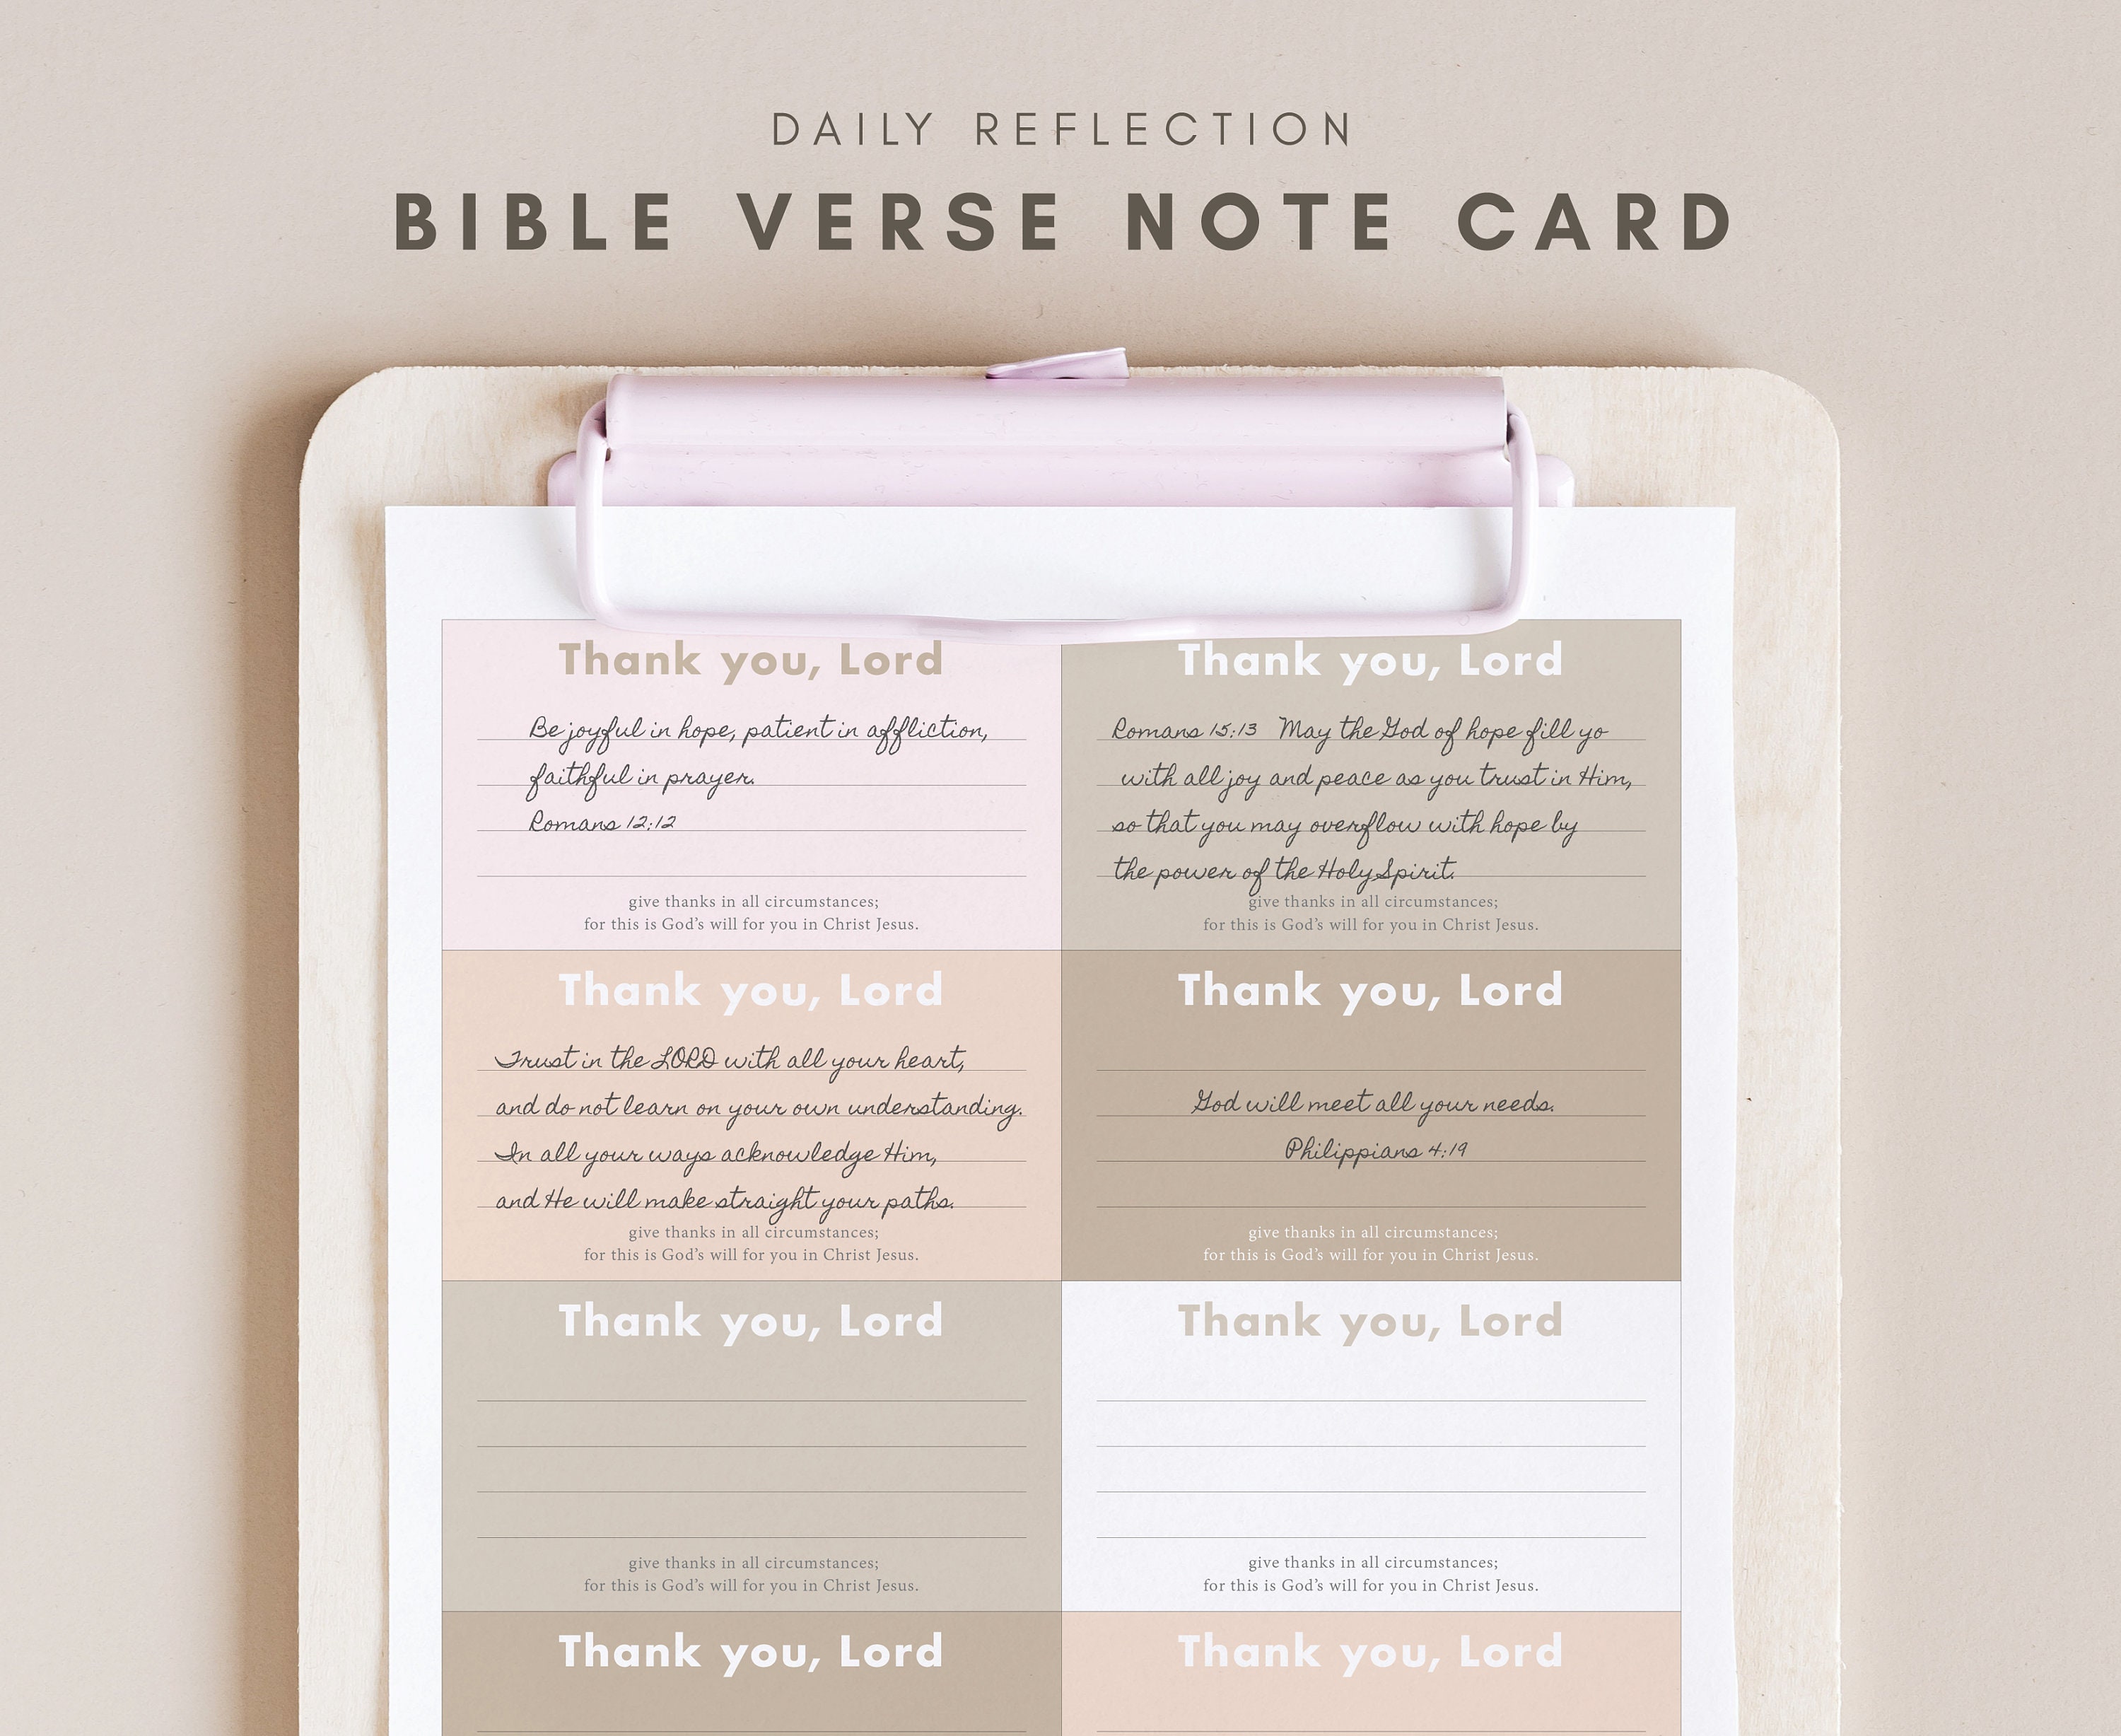 DAILY REFLECTION
BIBLE VERSE NOTE CARD
Thank you, Lord
Be joyful in hope, patient in affliction,
faithful in prayer.
Romans 12:12
give thanks in all circumstances;
for this is God's will for you in Christ Jesus.
Thank you, Lord
Romans 15:13 May the God of hope fill yo
with all joy and peace as you trust in Him,
so that you may overflow with hope by
the power of the Holy Spirit.
give thanks in all circumstances;
for this is God's will for you in Christ Jesus.
Thank you, Lord
Trust in the LORD with all your heart,
and do not learn on your own understanding.
In all your ways acknowledge Him,
and He will make straight your paths.
give thanks in all circumstances;
for this is God's will for you in Christ Jesus.
Thank you, Lord
God will meet all your needs.
Philippians 4:19
give thanks in all circumstances;
for this is God's will for you in Christ Jesus.
Thank you, Lord
give thanks in all circumstances;
for this is God's will for you in Christ Jesus.
Thank you, Lord
give thanks in all circumstances;
for this is God's will for you in Christ Jesus.
Thank you, Lord
Thank you, Lord